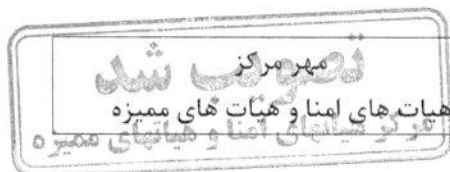 مهر مرکز
هیات های امنا و هیّات های ممیزه
تصویب شد
مرکز هیاتهای امنا و هیاتهای ممیزه